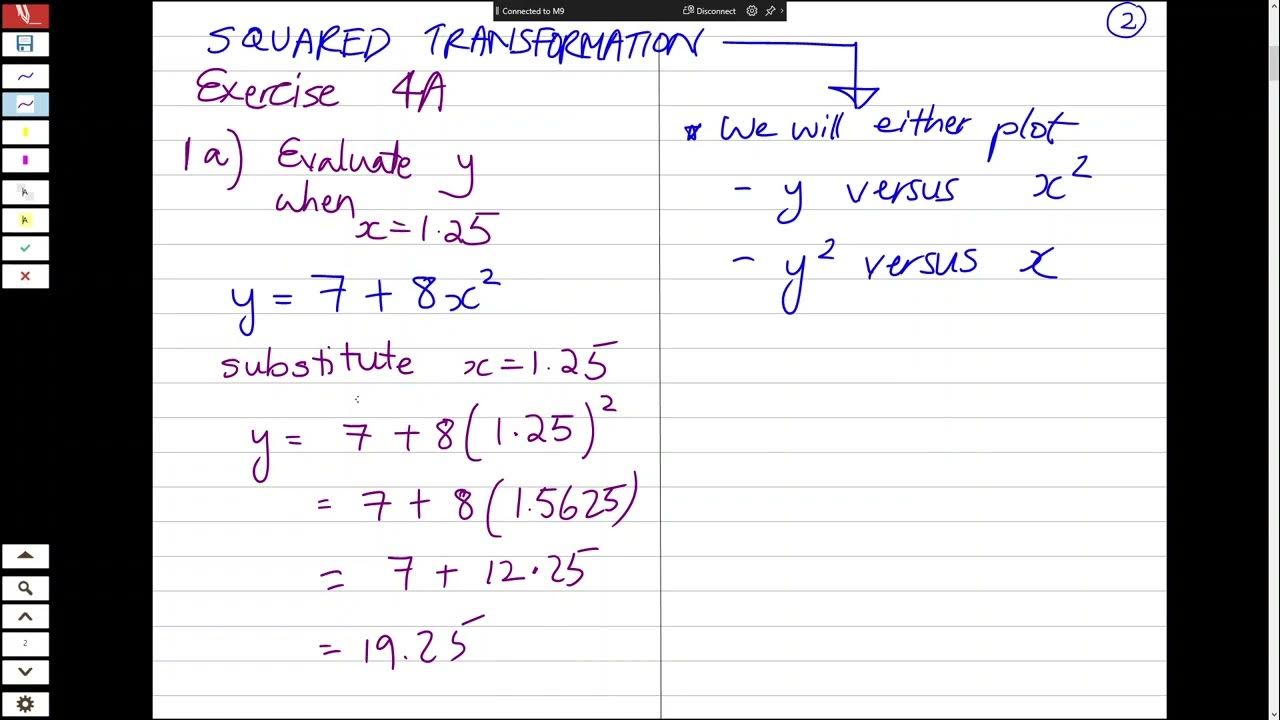 Connected to M9 Disconnect
2
SQUARED TRANSFORMATION
Exercise 4A
1a) Evaluate y
when
x=1.25
y = 7 + 8x²
substitute x=1.25
y = 7 + 8(1.25)²
= 7 + 8(1.5625)
= 7 + 12.25
= 19.25
* We will either plot
- y versus x²
- y² versus x
A
A
2